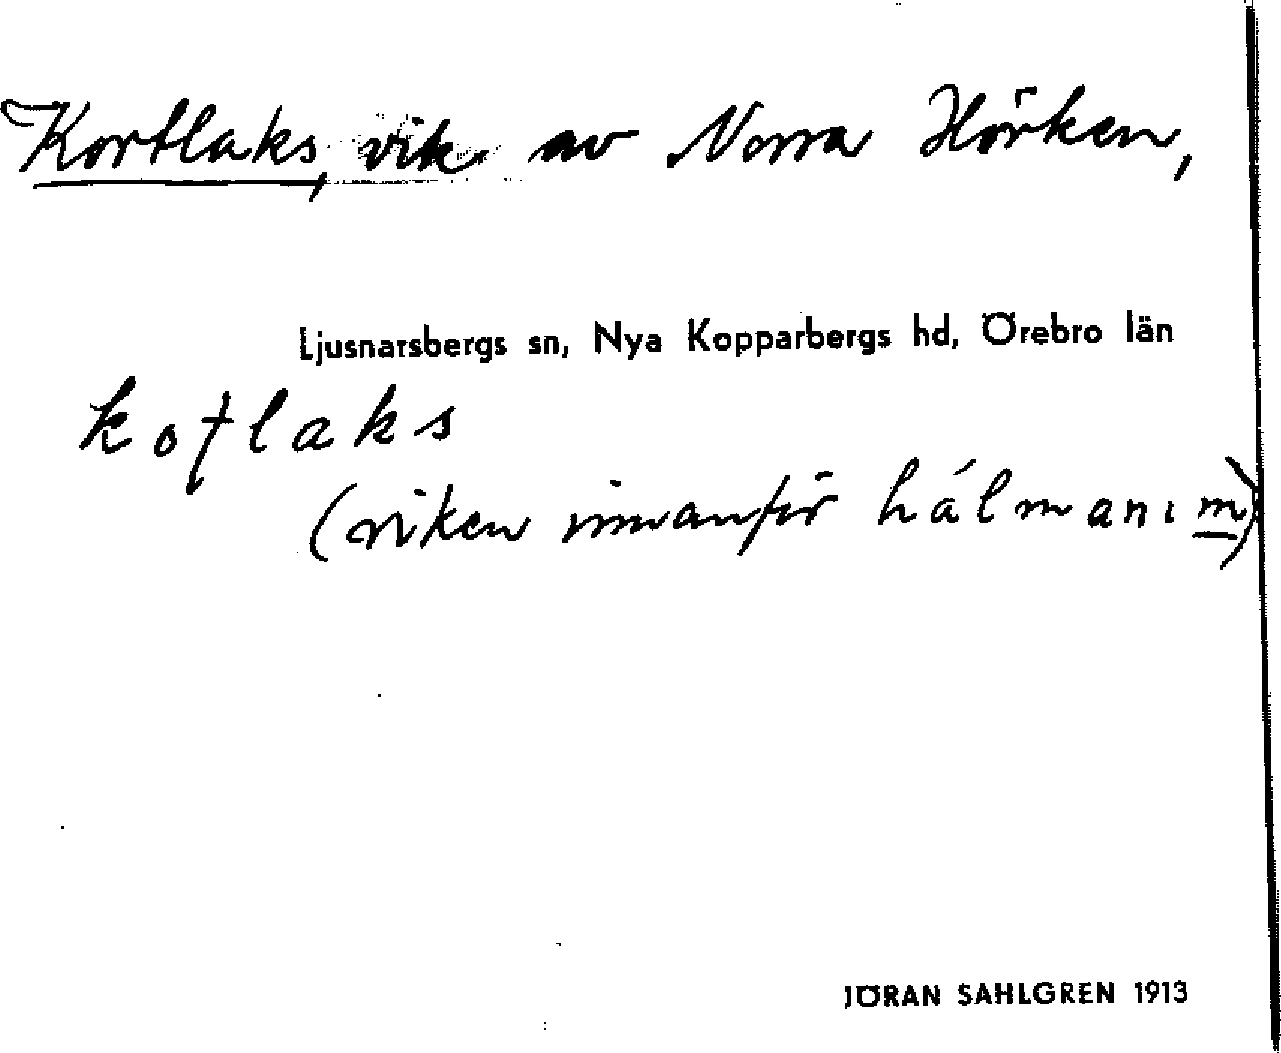 Kortlaks, vik av Norra Hörken,
Ljusnarsbergs sn, Nya Kopparbergs hd, Örebro län
koƭlaks
(viken innanför hálmanım̲)
JÖRAN SAHLGREN 1913